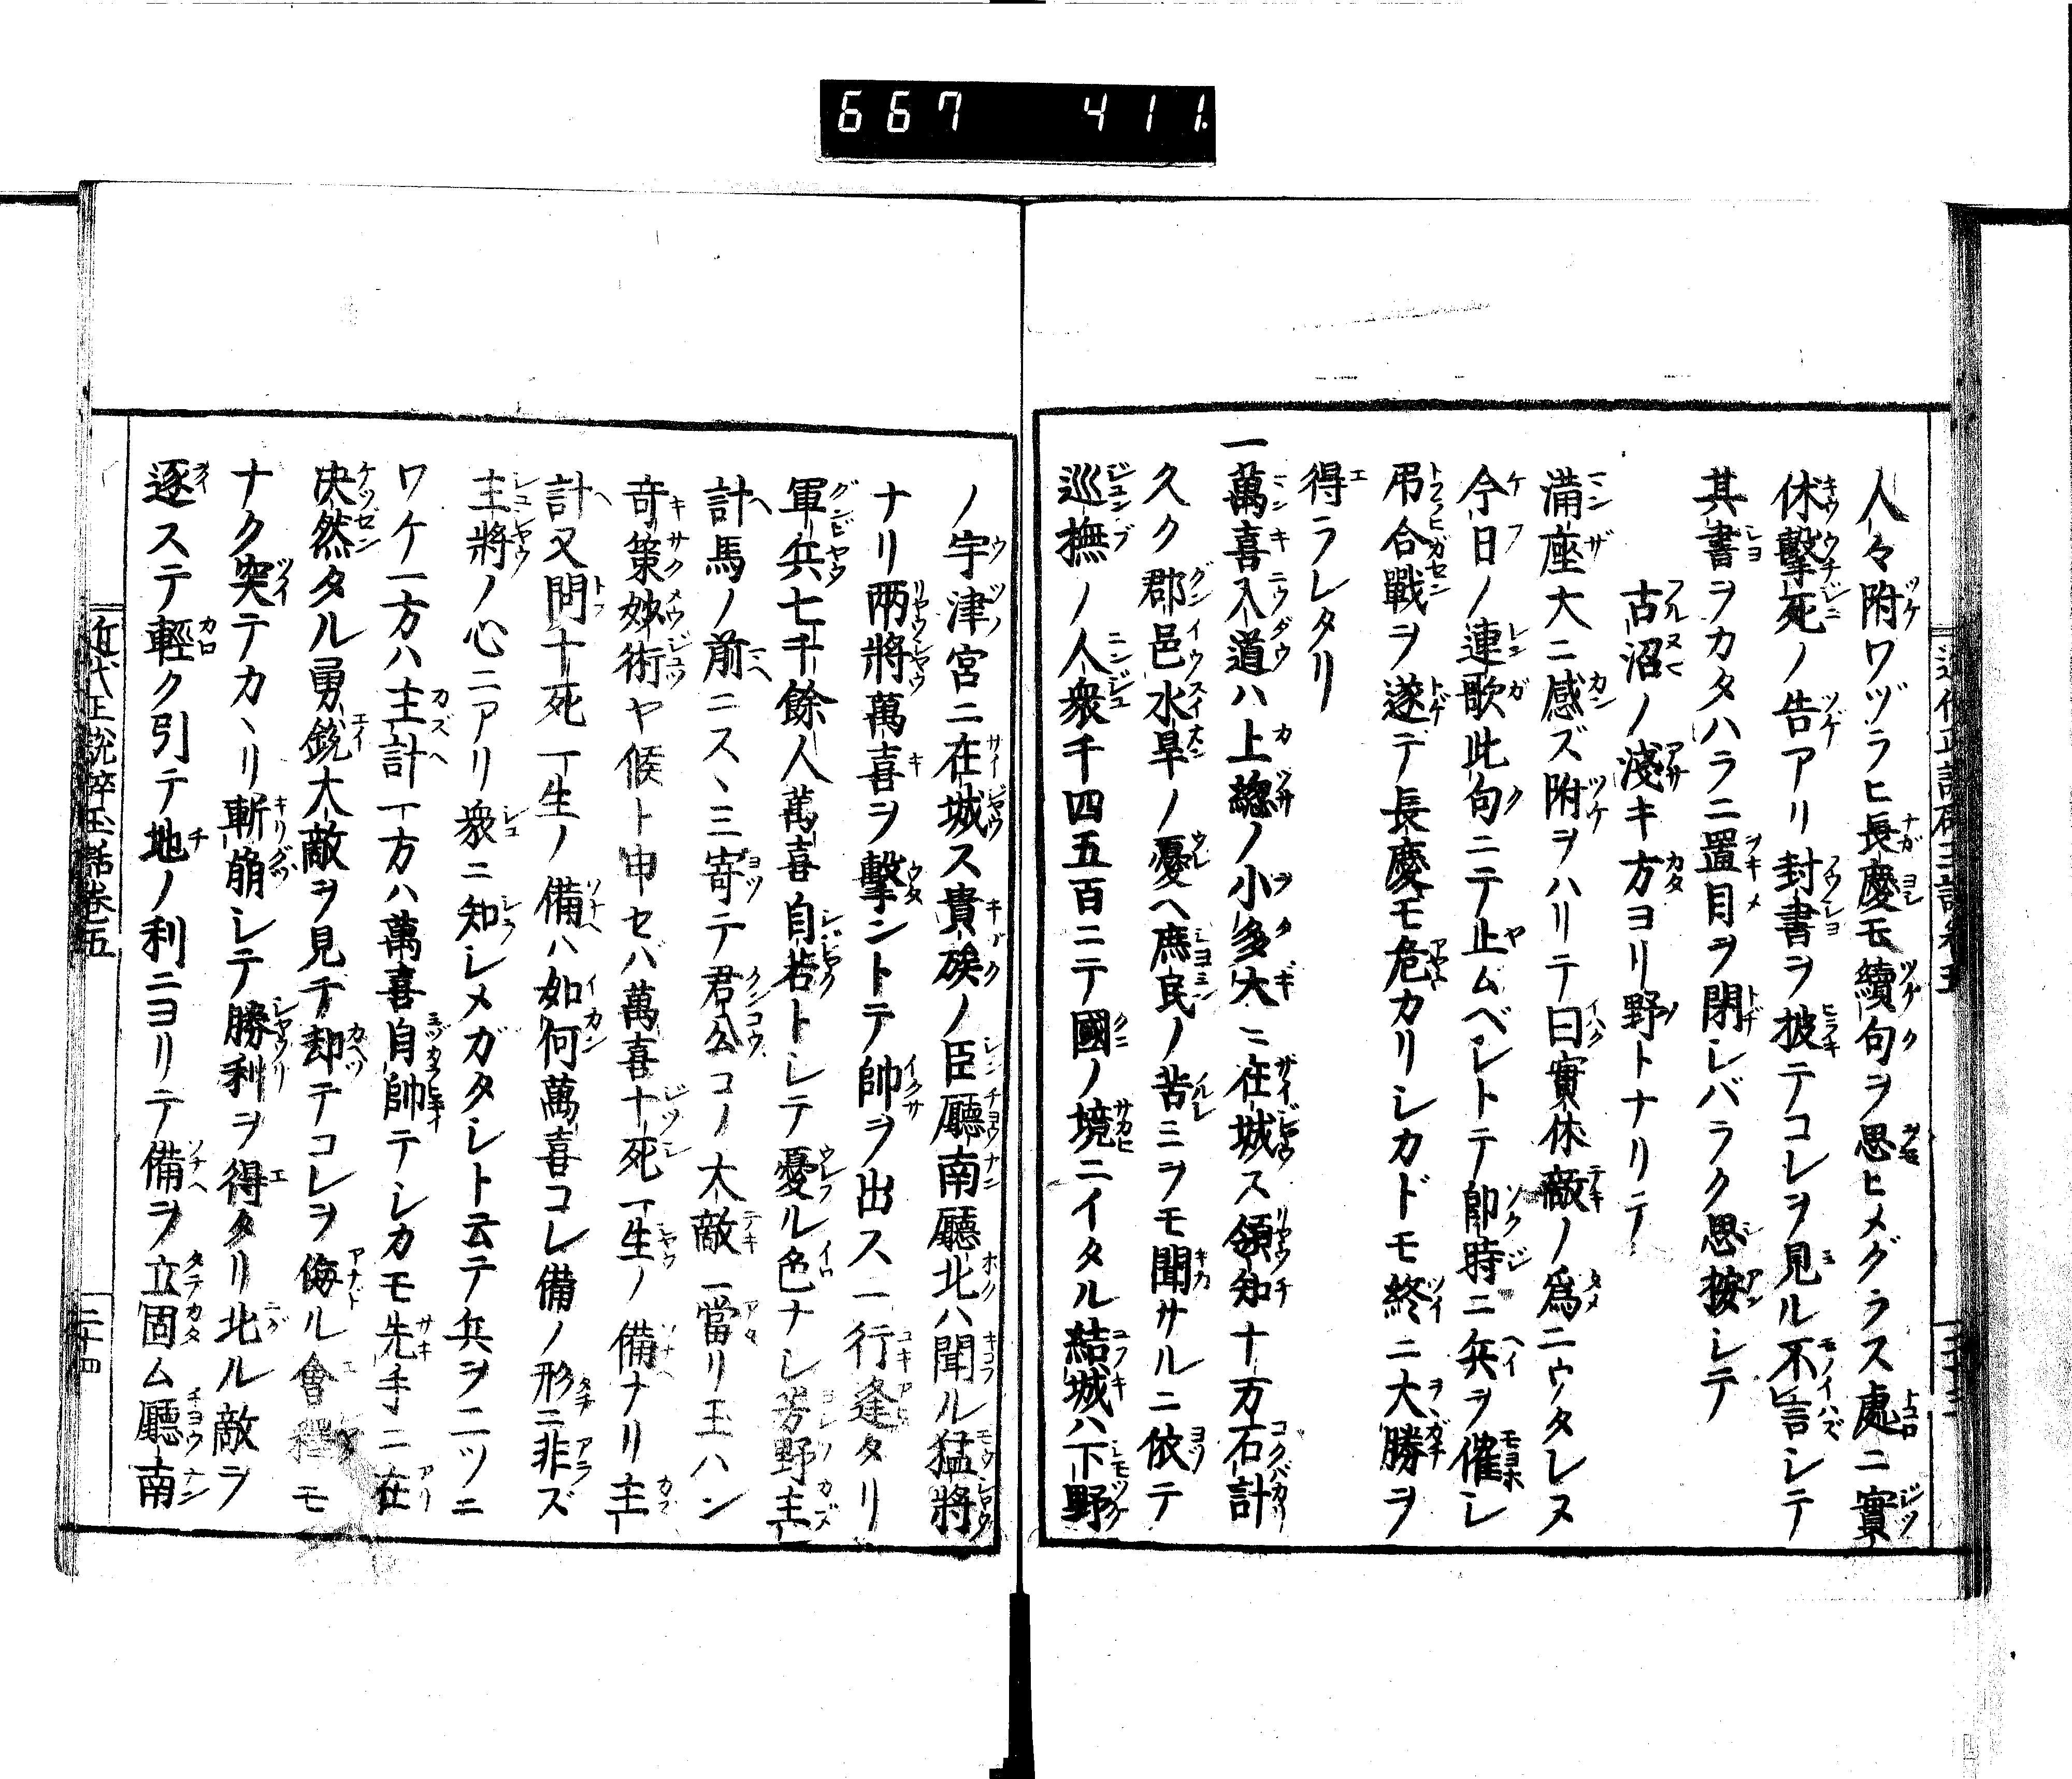 667 411.
人々附ワヅラヒ長慶モ續句ヲ思ヒメグラス處ニ實
休擊死ノ告アリ封書ヲ披テコレヲ見ル不言シテ
其書ヲカタハラニ置目ヲ閉シバラク思按シテ
古沼ノ淺キ方ヨリ野トナリテ
滿座大ニ感ズ附ヲハリテ曰實休敵ノ爲ニウタレヌ
今日ノ連歌此句ニテ止ムベシトテ卽時ニ兵ヲ催シ
弔合戰ヲ遂テ長慶モ危カリシカドモ終ニ大勝ヲ
得ラレタリ
一萬喜入道ハ上總ノ小多大ニ在城ス領知十万石計
久ク郡邑水旱ノ憂ヘ庶民ノ苦ミヲモ聞サルニ依テ
巡撫ノ人衆千四五百ニテ國ノ境ニイタル結城ハ下野
ノ宇津宮ニ在城ス貴族ノ臣廳南廳北ハ聞ル猛將
ナリ兩將萬喜ヲ擊ントテ帥ヲ出ス一行逢タリ
軍兵七千餘人萬喜自若トシテ憂ル色ナシ芳野主
計馬ノ前ニスヽミ寄テ君公コノ大敵ニ當リ玉ハン
奇策妙術ヤ候ト申セバ萬喜十死一生ノ備ナリ主
計又問十死一生ノ備ハ如何萬喜コレ備ノ形ニ非ズ
主將ノ心ニアリ衆ニ知シメガタシト云テ兵ヲ二ツニ
ワケ一方ハ主計一方ハ萬喜自帥テシカモ先手ニ在
決然タル勇銳大敵ヲ見テ却テコレヲ侮ル會釋モ
ナク突テカヽリ斬崩シテ勝利ヲ得タリ北ル敵ヲ
逐ステ輕ク引テ地ノ利ニヨリテ備ヲ立固ム廳南
近代正說碎玉話卷五 二十四